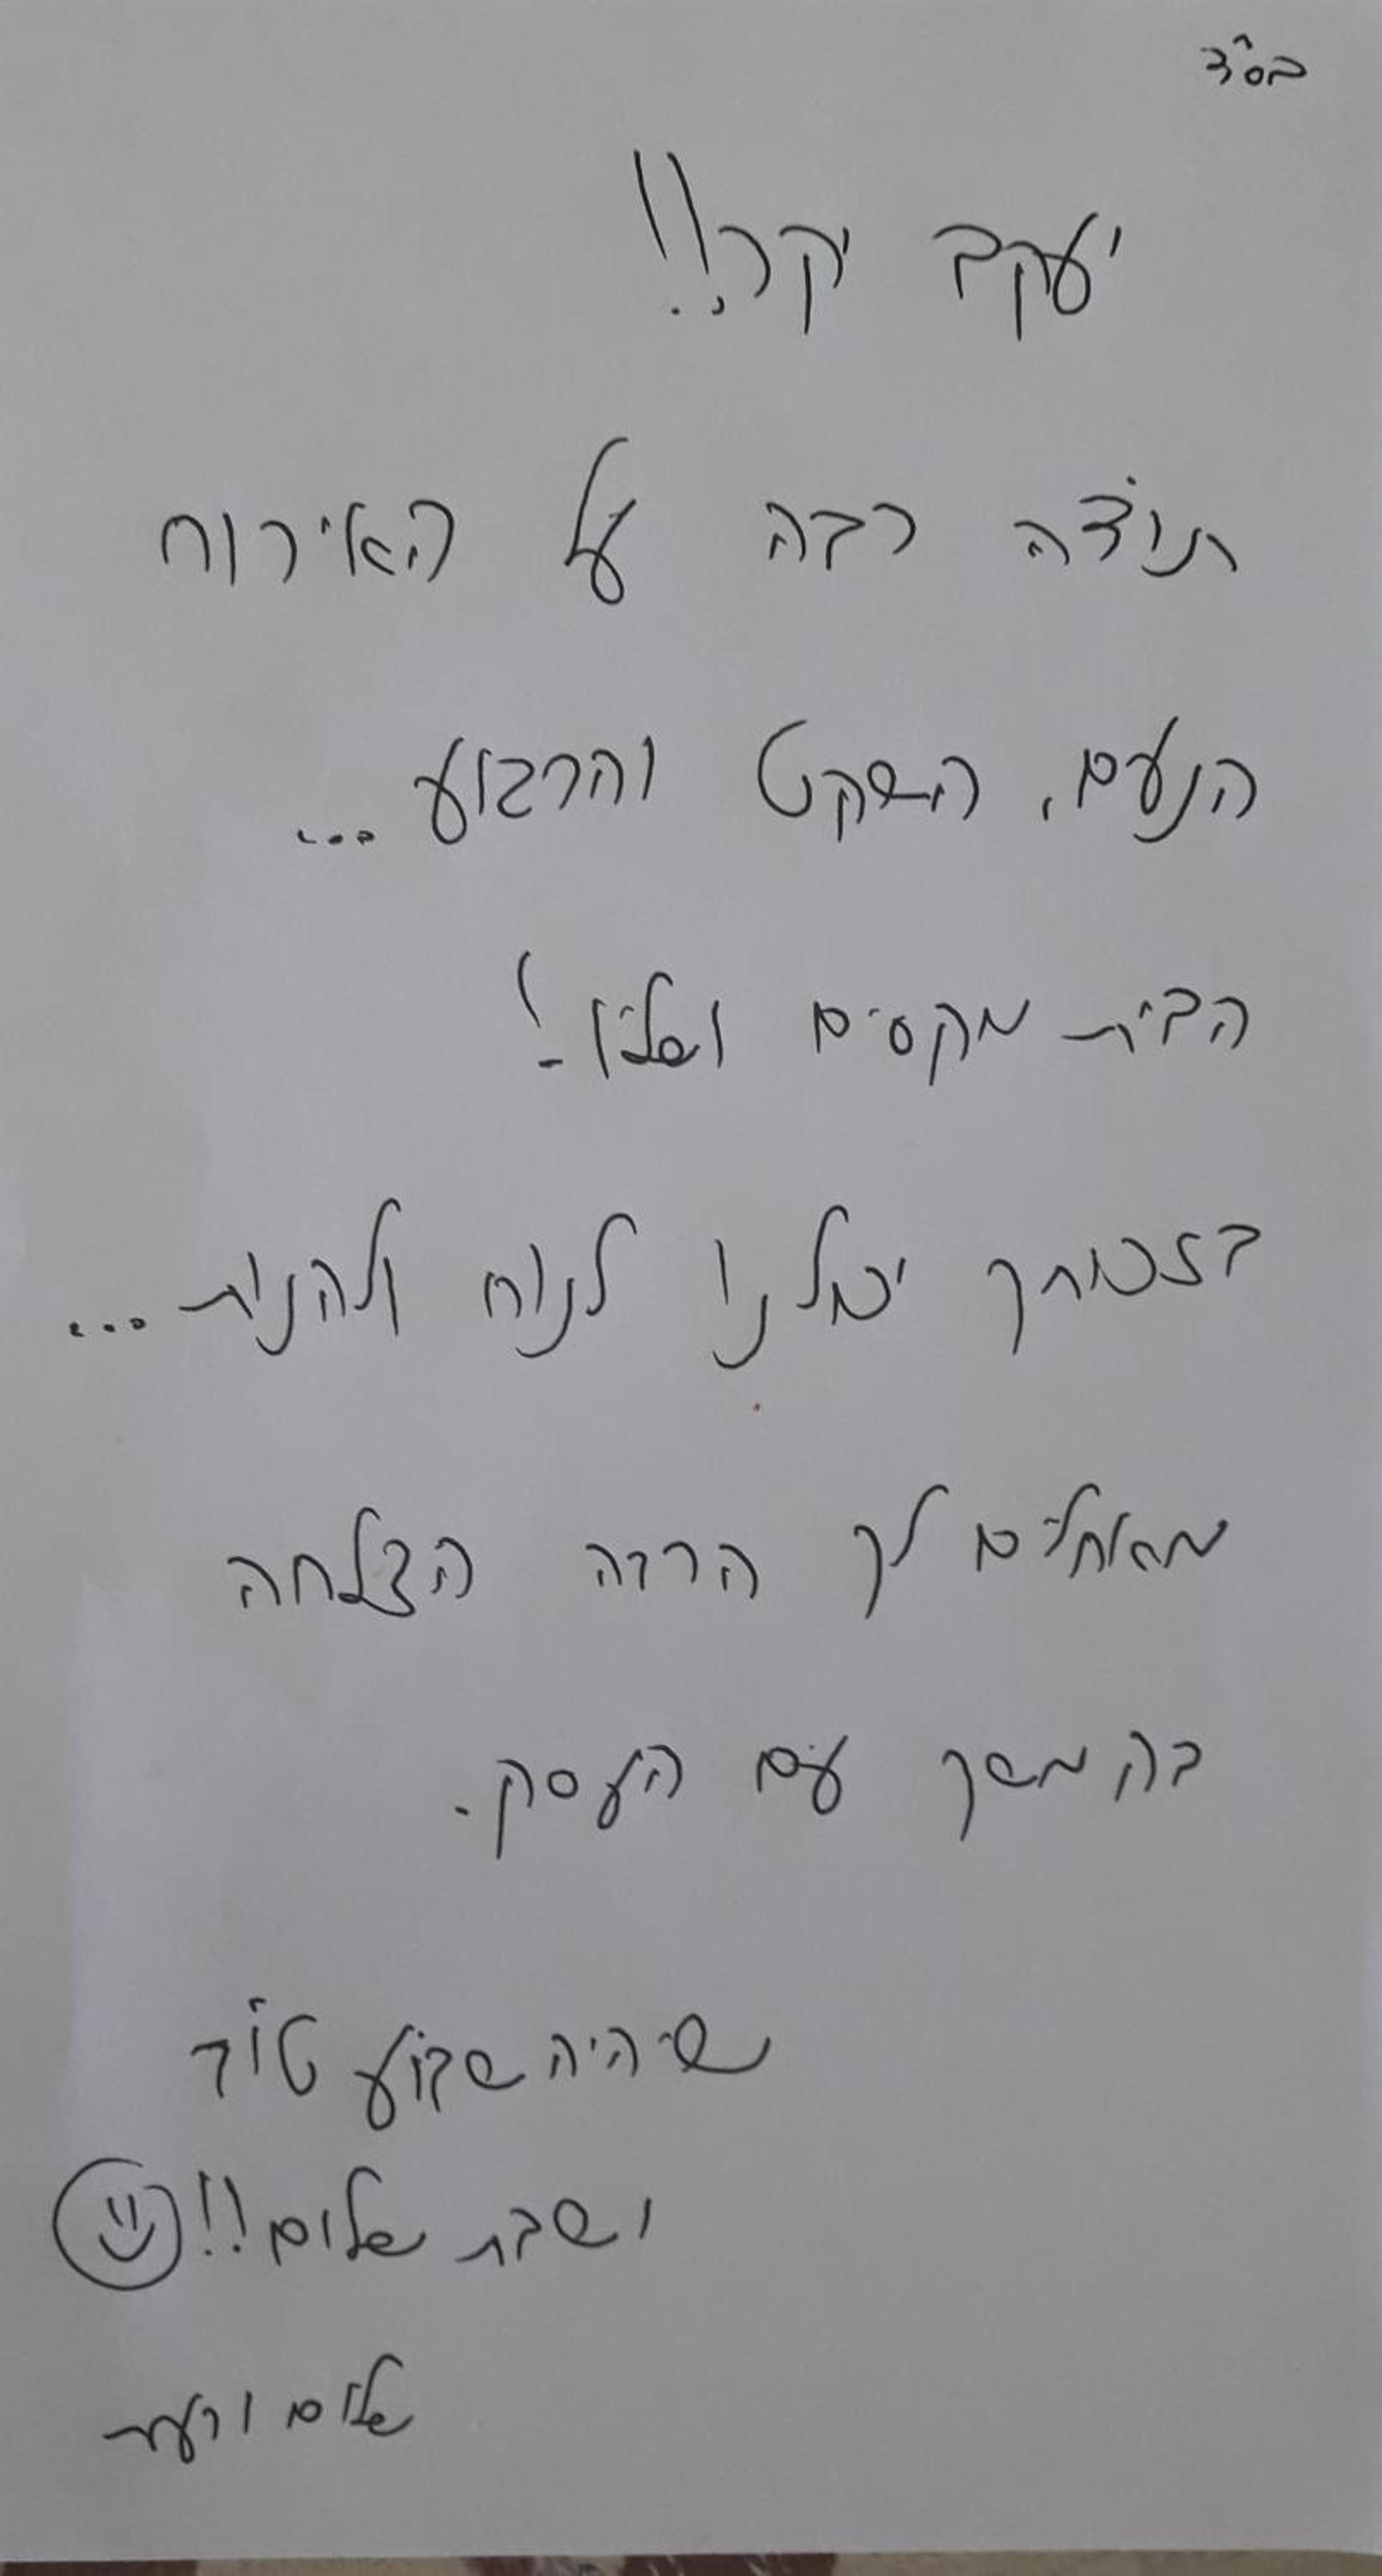 בס"ד
יעקב יקר!!
תודה רבה על האירוח
הנעים, השקט והרגוע...
הבית מקסים ושליו!
בזכותך יכולנו לנוח ולהנות...
מאחלים לך הרבה הצלחה
בהמשך עם העסק.
שיהיה שבוע טוב
ושבת שלום!!
שלום ורעות